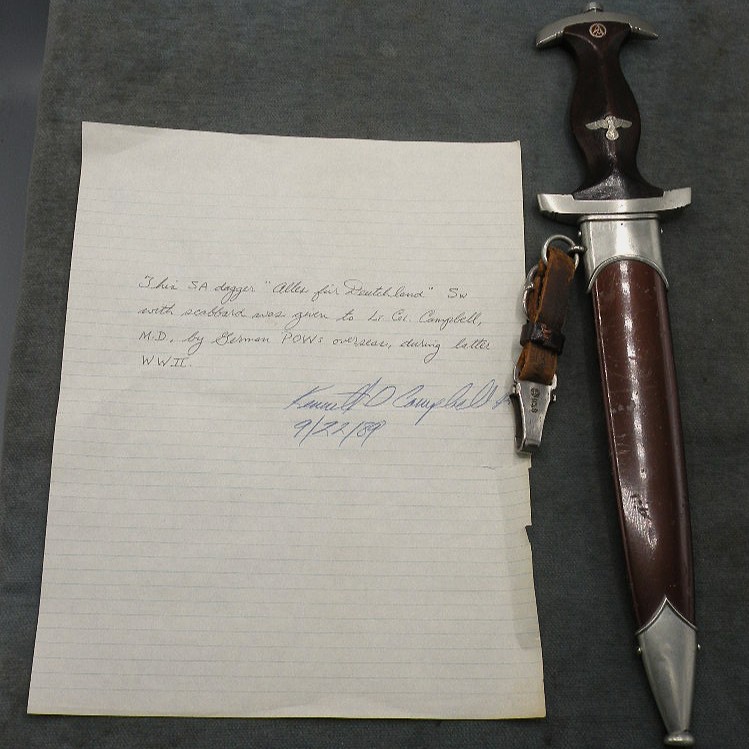 This SA dagger "Alles für Deutchland" Sw
with scabbard was given to Lt Col. Campbell,
M.D. by German POWs overseas, during latter
WWII.
Kenneth D Campbell
9/22/89